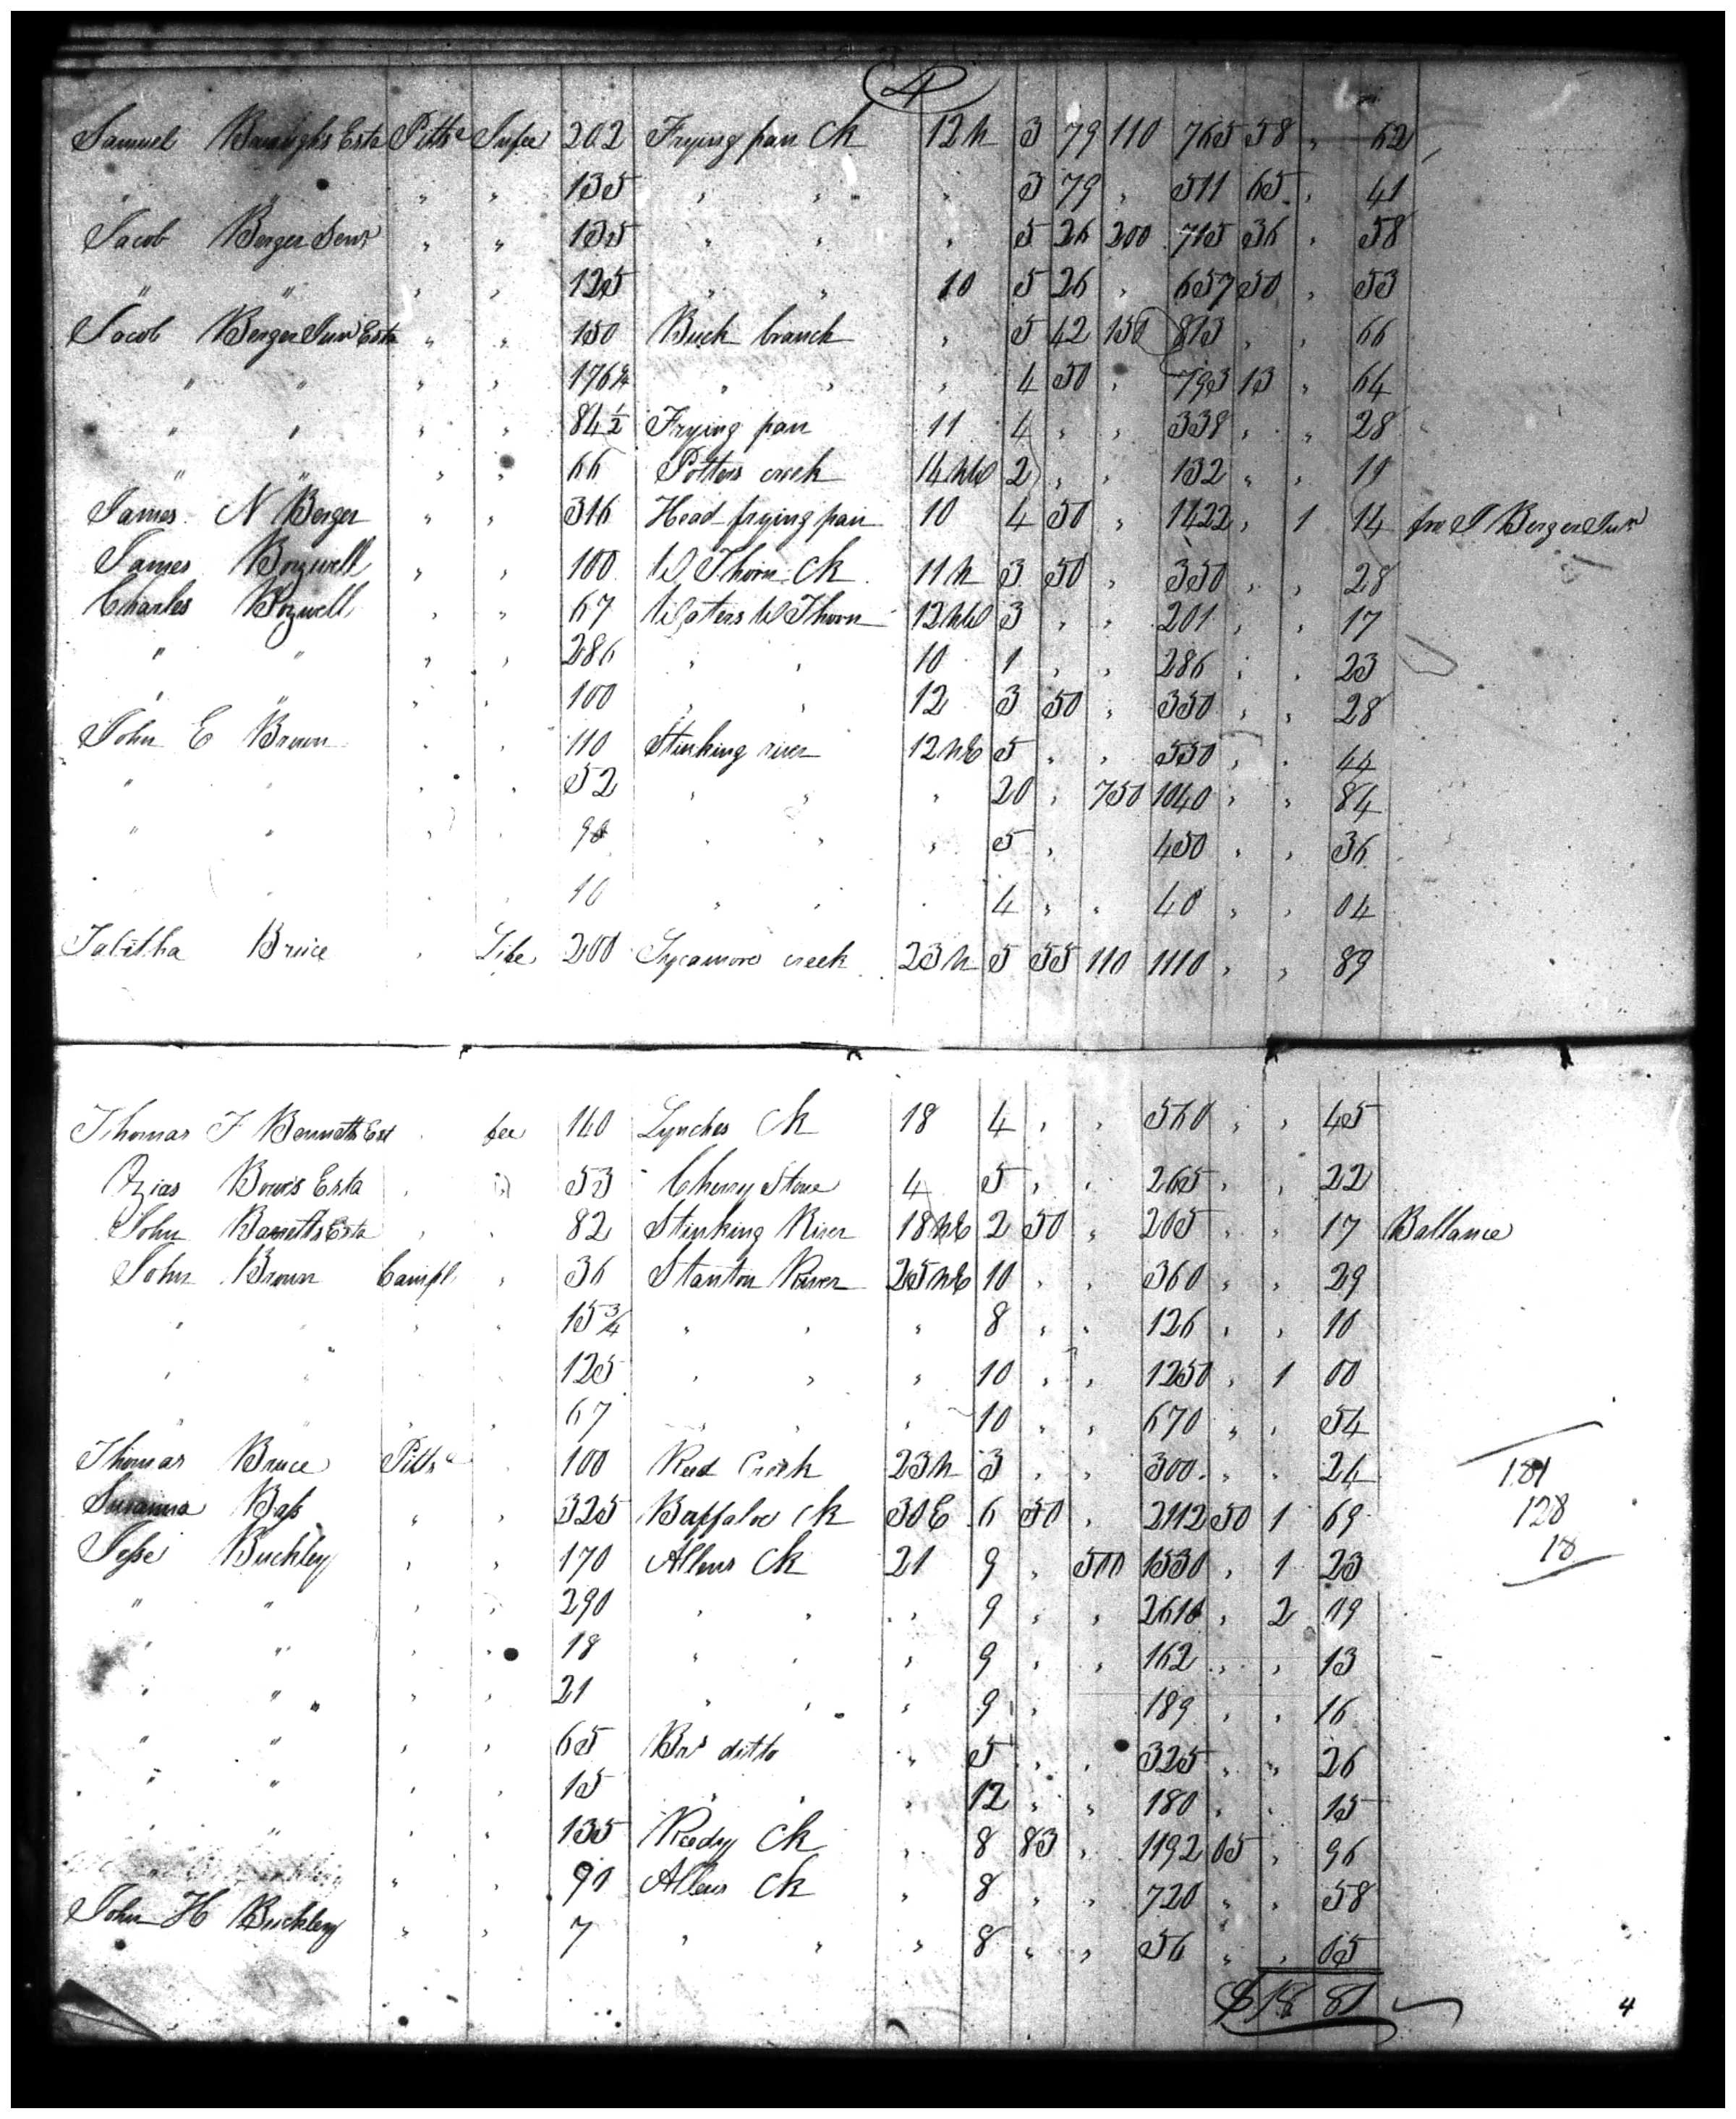 4
Samuel Burrough's Esta Pitts a In fee 202 Frying pan Ck 12 N 3 79 110 765 58 " 62
" " " " 135 " " " 3 79 " 511 65 " 41
Jacob Berger Senr " " 135 " " " 5 26 200 715 36 " 58
" " " " 125 " " 10 5 26 " 657 50 " 53
Jacob Berger Junr Esta " " 150 Buck branch " 5 42 150 813 " " 66
" " " " 176 1/4 " " " 4 50 " 793 13 " 64
" " " " 84 1/2 Frying pan 11 4 " " 338 " " 28
" " " " 66 Potters creek 14 NW 2 " " 132 " " 11
James N Berger " " 316 Head frying pan 10 4 50 " 1422 " 1 14 fro J Berger Junr
James Bozwell " " 100 W Thorn Ck 11 N 3 50 " 350 " " 28
Charles Bozwell " " 67 Waters W Thorn 12 NW 3 " " 201 " " 17
" " " " 286 " " 10 1 " " 286 " " 23
" " " " 100 " " 12 3 50 " 350 " " 28
John E Brown " " 110 Stinking river 12 NE 5 " " 550 " " 44
" " " " 52 " " " 20 " 750 1040 " " 84
" " " " 90 " " " 5 " 450 " " 36
" " " " 10 " " " 4 " " 40 " " 04
Tabitha Bruce " Life 200 Sycamore creek 23 N 5 55 110 1110 " " 89
Thomas F Bennetts Est " fee 140 Lynches Ck 18 4 " " 560 " " 45
Ozias Bow's Esta " " 53 Cherry Stone 4 5 " " 265 " " 22
John Barretts Esta " " 82 Stinking River 18 NE 2 50 " 205 " " 17 Ballance
John Brown Campl " 36 Stanton River 25 NE 10 " " 360 " " 29
" " " " 15 3/4 " " " 8 " " 126 " " 10
" " " " 125 " " " 10 " " 1250 " 1 00
" " " 67 " " " 10 " " 670 " " 54
Thomas Bruce Pitts a " 100 Reed Creek 23 N 3 " " 300 " " 24 181
Susanna Bass " " 325 Buffaloe Ck 30 E 6 50 " 2112 50 1 69 128
Jesse Buckley " " 170 Allens Ck 21 9 " 500 1530 " 1 23 18
" " " " 290 " " " 9 " " 2610 " 2 09
" " " " 18 " " " 9 " " 162 " " 13
" " " " 21 " " " 9 " 189 " " 16
" " " " 65 Brs ditto " 5 " " 325 " " 26
" " " " 15 " " " 12 " " 180 " " 15
" " " " 135 Reedy Ck " 8 83 " 1192 05 " 96
" " 90 Allens Ck " 8 " " 720 " " 58
John H Buckley " " 7 " " " 8 " " 56 " " 05
$ 18 81
4